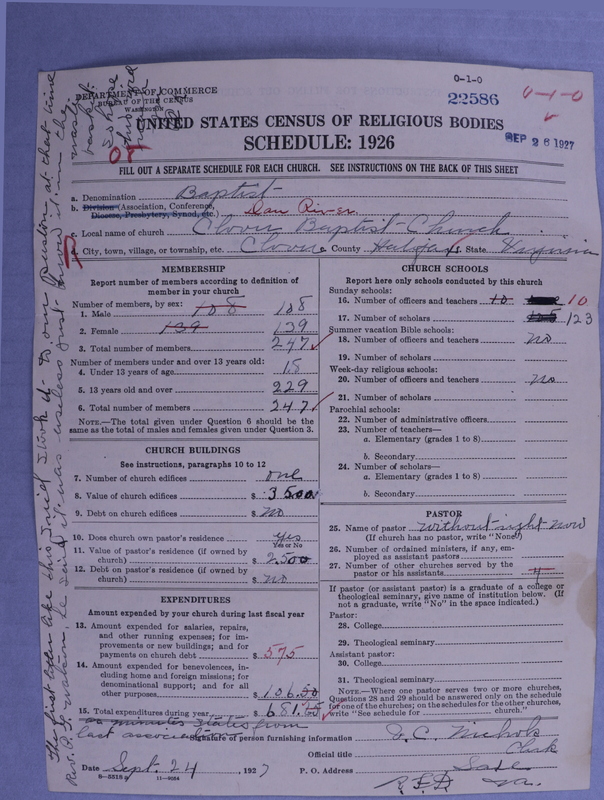 0-1-0
DEPARTMENT OF COMMERCE
BUREAU OF THE CENSUS
WASHINGTON
22586
0-1-0
UNITED STATES CENSUS OF RELIGIOUS BODIES
SCHEDULE: 1926
SEP 26 1927
FILL OUT A SEPARATE SCHEDULE FOR EACH CHURCH. SEE INSTRUCTIONS ON THE BACK OF THIS SHEET
a. Denomination Baptist
b. Division (Association, Conference, Diocese, Presbytery, Synod, etc.) Dan River
c. Local name of church Clover Baptist Church
d. City, town, village, or township, etc. Clover County Halifax State Virginia
MEMBERSHIP
Report number of members according to definition of member in your church
Number of members, by sex:
1. Male 108 108
2. Female 139 139
3. Total number of members 247
Number of members under and over 13 years old:
4. Under 13 years of age 18
5. 13 years old and over 229
6. Total number of members 247
NOTE.—The total given under Question 6 should be the same as the total of males and females given under Question 3.
CHURCH BUILDINGS
See instructions, paragraphs 10 to 12
7. Number of church edifices one
8. Value of church edifices $ 3500
9. Debt on church edifices $ no
10. Does church own pastor's residence? yes
Yes or No
11. Value of pastor's residence (if owned by church) $ 2500
12. Debt on pastor's residence (if owned by church) $ no
EXPENDITURES
Amount expended by your church during last fiscal year
13. Amount expended for salaries, repairs, and other running expenses; for improvements or new buildings; and for payments on church debt $ 575
14. Amount expended for benevolences, including home and foreign missions; for denominational support; and for all other purposes $ 106.50
15. Total expenditures during year $ 681.
as minutes states from
last association
CHURCH SCHOOLS
Report here only schools conducted by this church
Sunday schools:
16. Number of officers and teachers 10 10
17. Number of scholars 125 123
Summer vacation Bible schools:
18. Number of officers and teachers no
19. Number of scholars
Week-day religious schools:
20. Number of officers and teachers no
21. Number of scholars
Parochial schools:
22. Number of administrative officers
23. Number of teachers—
a. Elementary (grades 1 to 8)
b. Secondary
24. Number of scholars—
a. Elementary (grades 1 to 8)
b. Secondary
PASTOR
25. Name of pastor without right now
(If church has no pastor, write "None")
26. Number of ordained ministers, if any, employed as assistant pastors
27. Number of other churches served by the pastor or his assistants 4
If pastor (or assistant pastor) is a graduate of a college or theological seminary, give name of institution below. (If not a graduate, write "No" in the space indicated.)
Pastor:
28. College
29. Theological seminary
Assistant pastor:
30. College
31. Theological seminary
NOTE.—Where one pastor serves two or more churches, Questions 28 and 29 should be answered only on the schedule for one of the churches; on the schedules for the other churches, write "See schedule for church."
Signature of person furnishing information J. C. Nichols
Official title Clerk
Date Sept. 24, 1927
P. O. Address Saxe
R.F.D. Va.
8-5318
11-9064
The first letter like this I rec'd I took it to our pastor at that time
Rev. P. he said it was useless just throw it in the
waste
basket
so hope